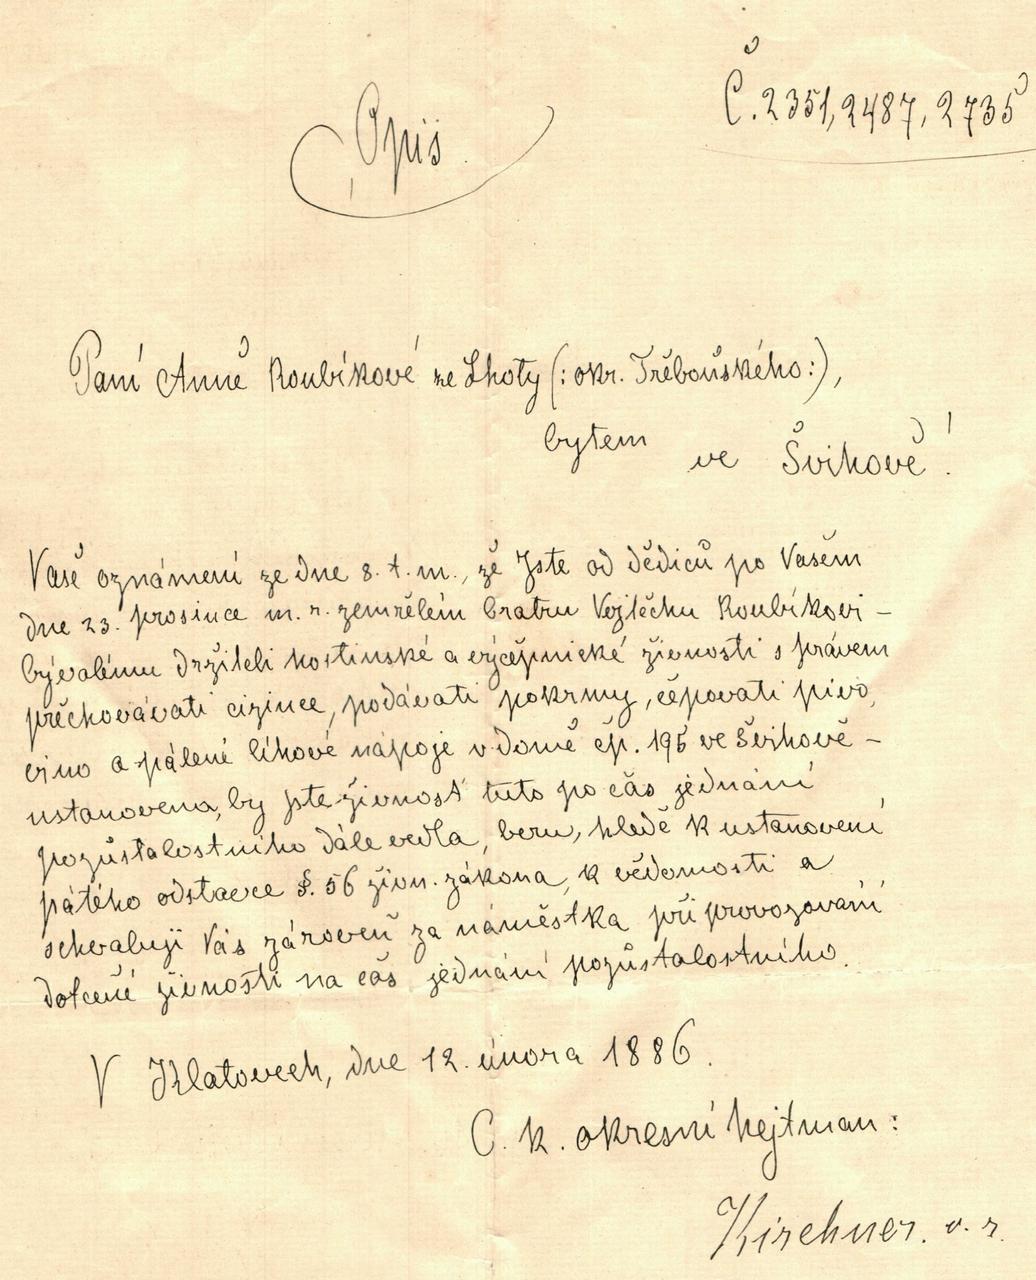 Č. 2351, 2487, 2735
Opis
Paní Anně Roubíkové ze Lhoty (: okr. Třeboňského :),
bytem
ve Švihově!
Vaše oznámení ze dne 8. t. m., že Jste od dědiců po Vašem
dne 23. prosince m. r. zemřelém bratru Vojtěchu Roubíkovi –
bývalému držiteli hostinské a výčepnické živnosti s právem
přechovávati cizince, podávati pokrmy, čepovati pivo,
víno a pálené líhové nápoje v domě čp. 195 ve Švihově –
ustanovena, by jste živnost tuto po čas jednání
pozůstalostního dále vedla, beru, hledě k ustanovení
pátého odstavce §. 56 živn. zákona, k vědomosti a
schvaluji Vás zároveň za náměstka při provozování
dotčené živnosti na čas jednání pozůstalostního.
V Klatovech, dne 12. února 1886.
C. k. okresní hejtman:
Kirchner. v. r.